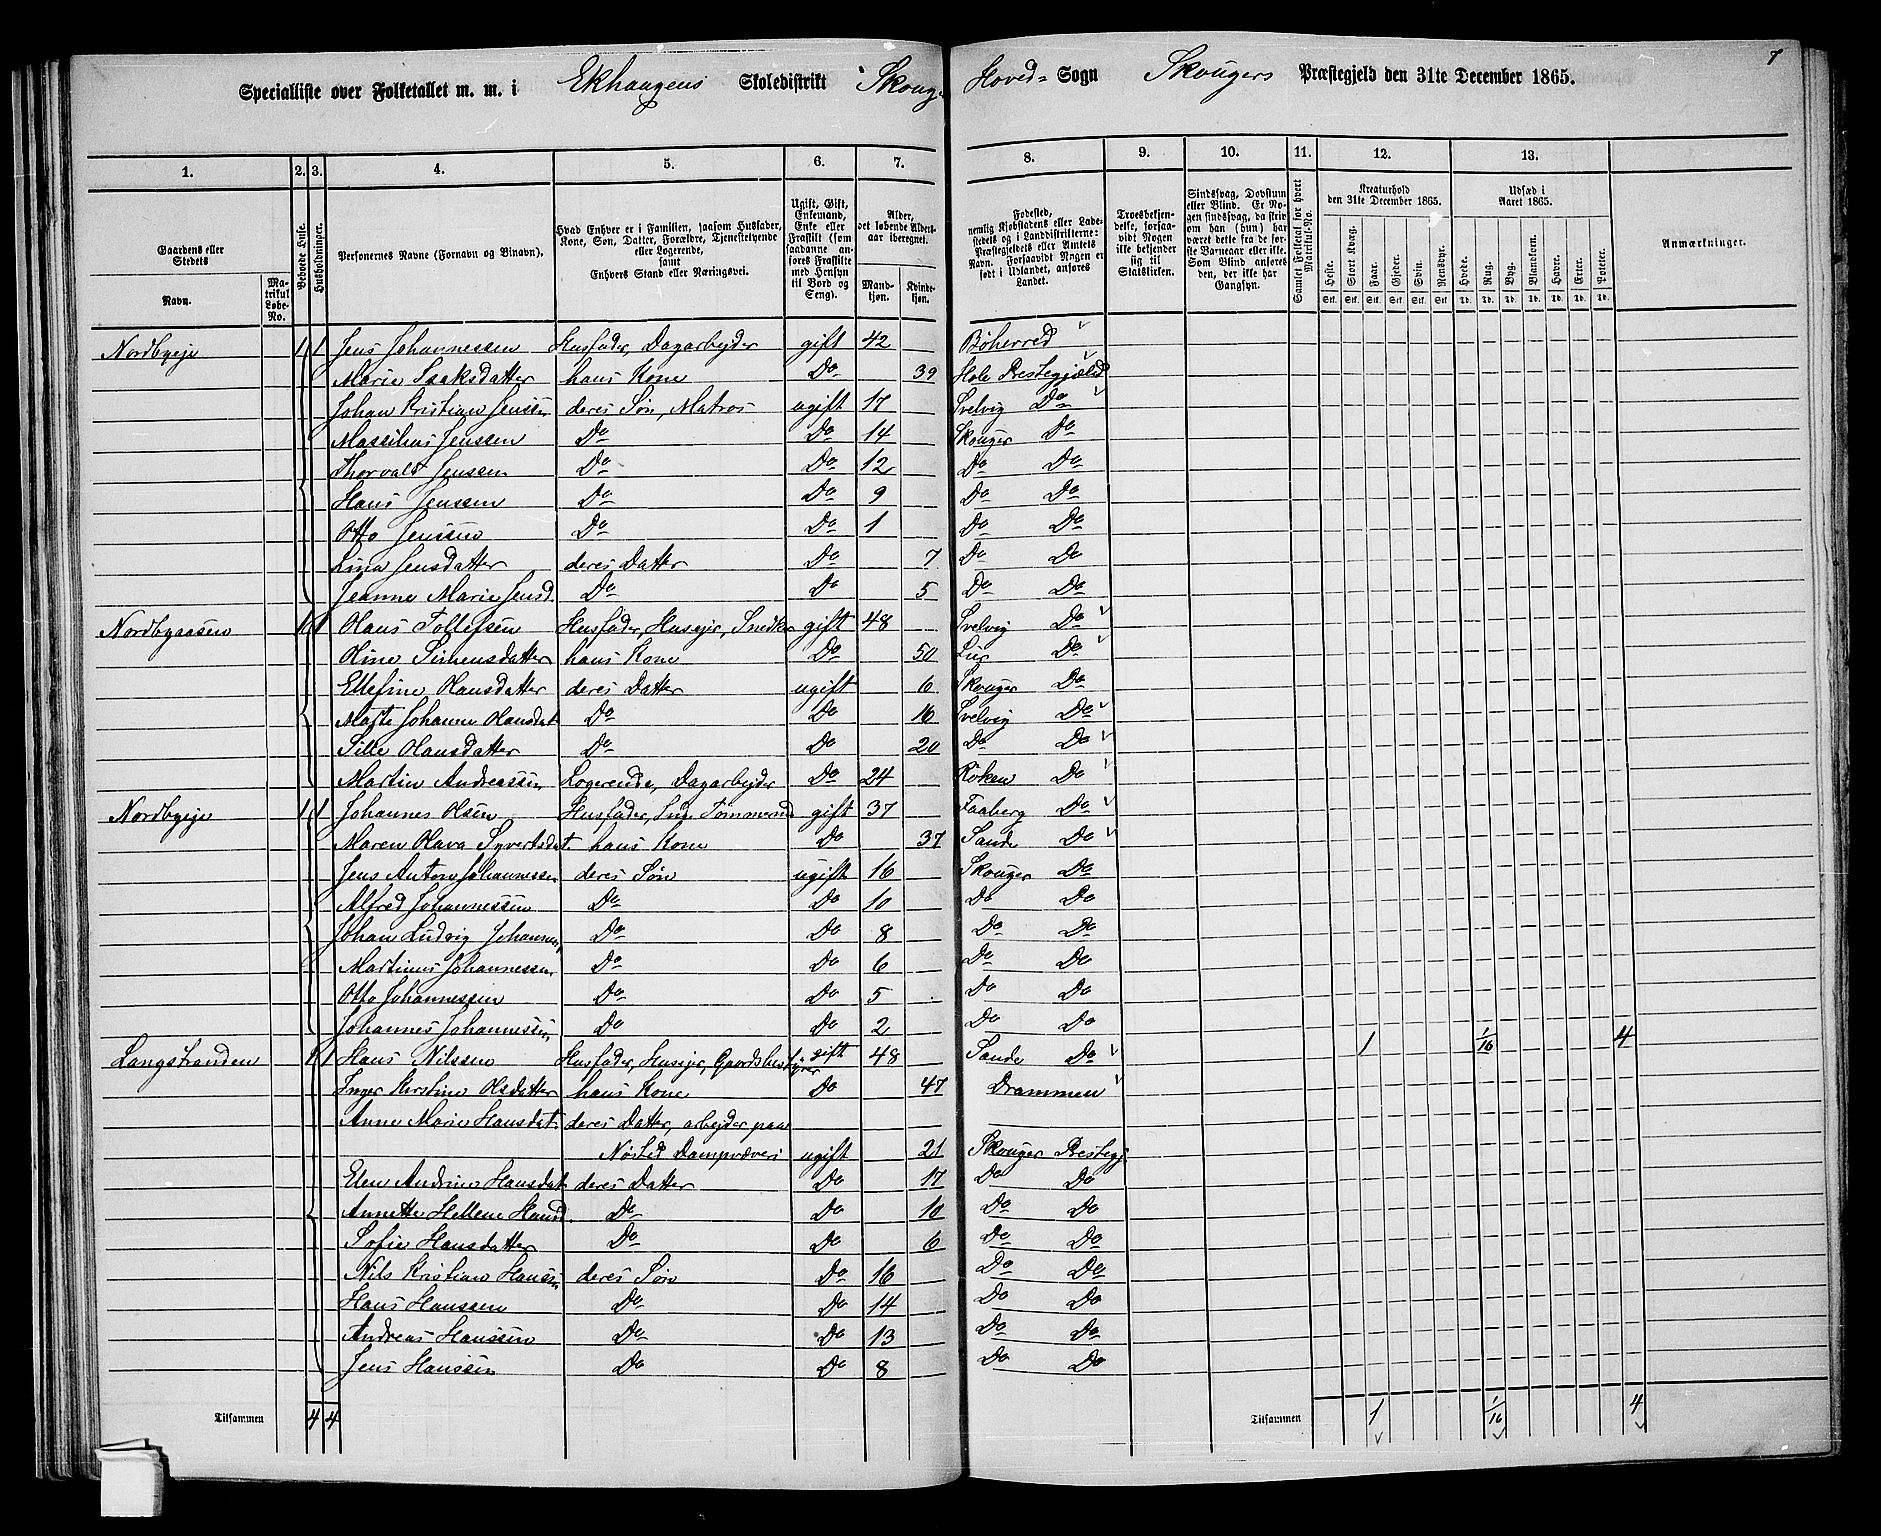 7
Specialliste over Folketallet m. m. i Ekhaugens Skoledistrikt Skouger Hoved= Sogn Skougers Præstegjeld den 31te December 1865.
1. 2. 3. 4. 5. 6. 7. 8. 9. 10. 11. 12. 13.
Gaardens eller Stedets
Navn.
Matrikul Løbe-No.
Beboede Huse.
Husholdninger.
Personernes Navne (Fornavn og Binavn).
Hvad Enhver er i Familien, saasom Husfader, Kone, Søn, Datter, Forældre, Tjenestetyende eller Logerende, samt Enhvers Stand eller Næringsvei.
Ugift, Gift, Enkemand, Enke eller Fraskilt (som saadanne anføres Fraskilte med Hensyn til Bord og Seng).
Alder, det løbende Aldersaar iberegnet.
Mandkjøn. Kvindekjøn.
Fødested, nemlig Kjøbstadens eller Ladestedets og i Landdistrikterne: Præstegjeldets eller Amtets Navn. Forsaavidt Nogen er født i Udlandet, anføres Landet.
Troesbekjendelse, forsaavidt Nogen ikke bekjender sig til Statskirken.
Sindssvag, Døvstum eller Blind. Er Nogen sindssvag, da skriv om han (hun) har været dette fra de første Barneaar eller ikke. Som Blind anføres den, der ikke har Gangsyn.
Samlet Folketal for hvert Matrikul-No.
Kreaturhold den 31te December 1865.
Heste. Stort Kvæg. Faar. Gjeder. Svin. Rensdyr.
Udsæd i Aaret 1865.
Hvede. Rug. Byg. Blandkorn. Havre. Erter. Poteter.
Stk. Stk. Stk. Stk. Stk. Stk. Td. Td. Td. Td. Td. Td. Td.
Anmærkninger.
Nordbyeje 1 1 Jens Johannessen Husfader, Dagarbejder gift 42 Böherred
Marie Isaksdatter hans Kone Do 39 Hole Prestegjæld
Johan Kristian Jenssen deres Søn, Matros ugift 17 Svelvig Do
Massilius Jenssen Do Do 14 Skouger Do
Thorvald Jenssen Do Do 12 Do Do
Hans Jenssen Do Do 9 Do Do
Otto Jenssen Do Do 1 Do Do
Lina Jensdatter deres Datter Do 7 Do Do
Jeanne Marie Jensd. Do Do 5 Do Do
Nordbyaasen 1 1 Hans Tollefsen Husfader, Husejer, Snedker gift 48 Svelvig Do
Oline Simensdatter hans Kone Do 50 Lier Do
Ellefine Hansdatter deres Datter ugift 6 Skouger Do
Johanne Hansdat Do Do 16 Svelvig Do
Sille Hansdatter Do Do 20 Do Do
Martin Andreassen Logerende, Dagarbejder Do 24 Röken Do
Nordbyeje 1 1 Johannes Olsen Husfader, gift 37 Faaberg Do
Maren Olava Syvertsdat. hans Kone Do 37 Sande Do
Jens Anton Johannessen deres Søn ugift 16 Skouger Do
Alfred Johannessen Do Do 10 Do Do
Johan Ludvig Johannes. Do Do 8 Do Do
Martinus Johannessen Do Do 6 Do Do
Otto Johannessen Do Do 5 Do Do
Johannes Johannessen Do Do 2 Do Do
Langstranden 1 1 Hans Nilssen Husfader, Husejer, Gaardsbestyrer gift 48 Sande Do 1 1/16 4
Inger Kirstine Olsdatter hans Kone Do 47 Drammen
Anne Marie Hansdat. deres Datter, arbejder paa
Nøsted Dampvæveri ugift 21 Skouger Prestegj.
Elen Andrine Hansdat. deres Datter Do 17 Do Do
Annette Hellene Hansd. Do Do 10 Do Do
Sofie Hansdatter Do Do 6 Do Do
Nils Kristian Hanssen deres Søn Do 16 Do Do
Hans Hanssen Do Do 14 Do Do
Andreas Hanssen Do Do 13 Do Do
Jens Hanssen Do Do 8 Do Do
Tilsammen 4 4 Tilsammen 1 1/16 4